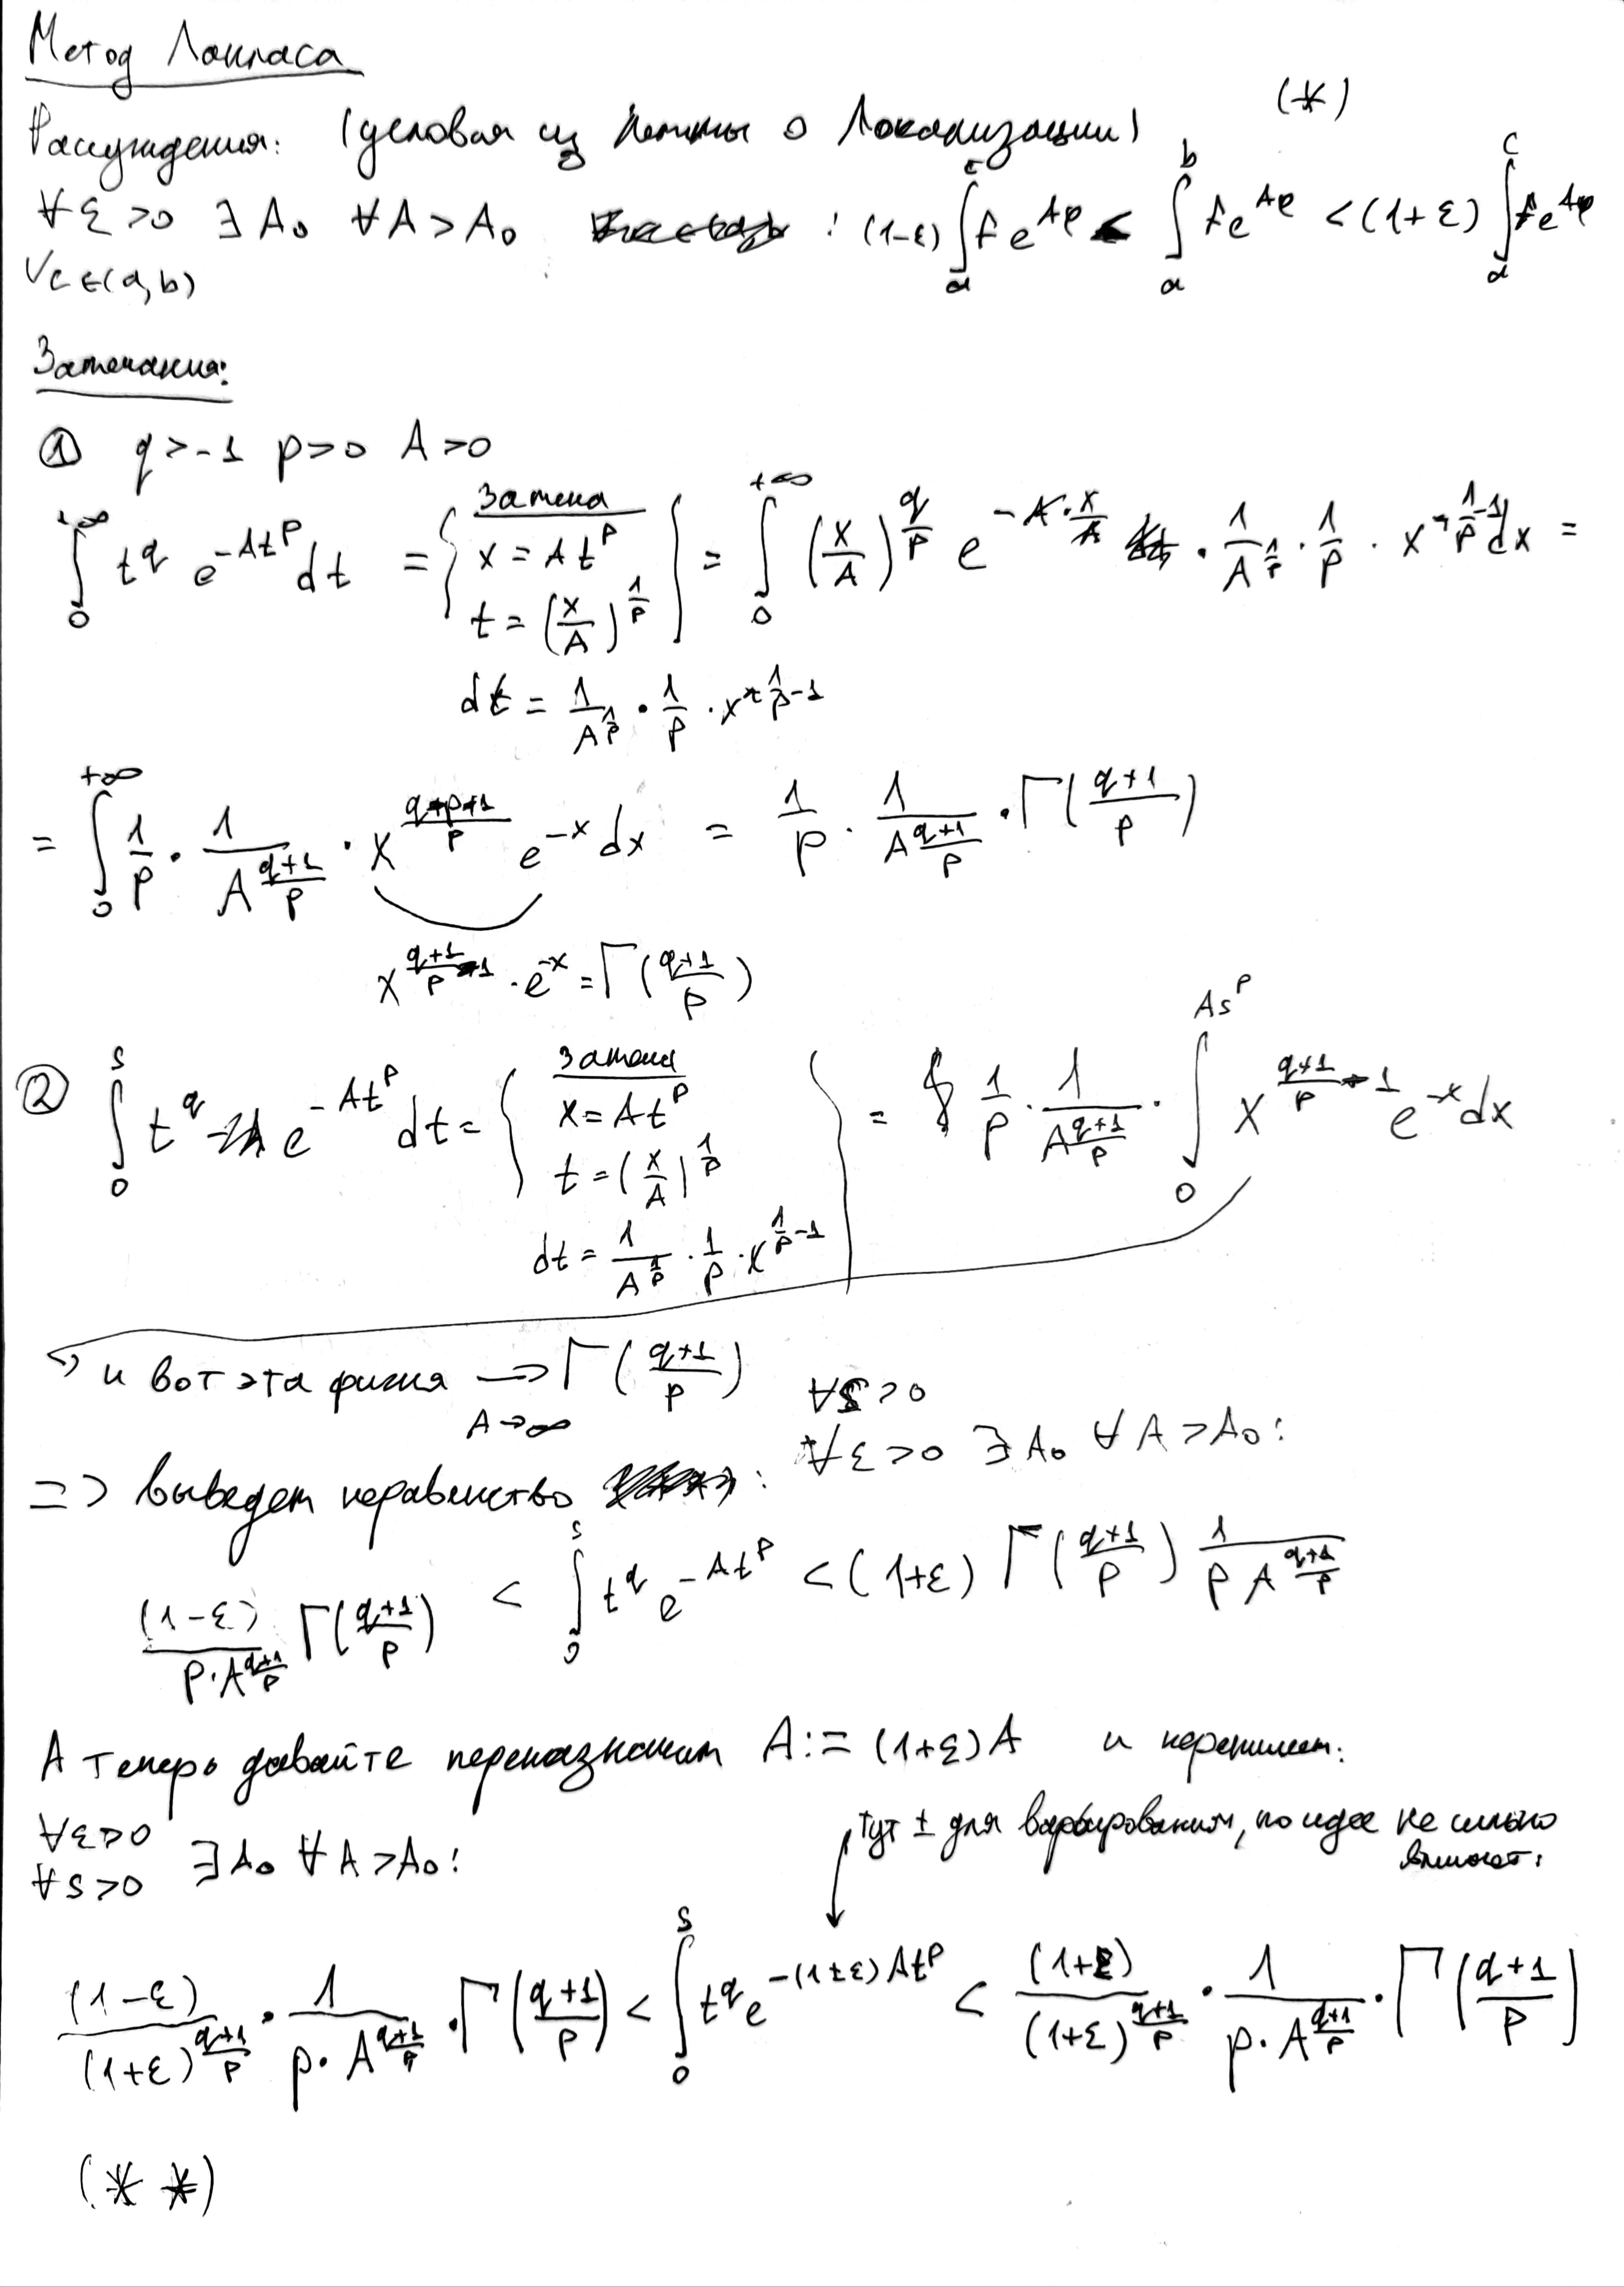 Метод Лапласа
Рассуждения: (условия из Леммы о Локализации) (*)
∀ε>0 ∃A₀ ∀A>A₀ : (1-ε)∫ₐᶜ f e^{Aφ} < ∫ₐᵇ f e^{Aφ} < (1+ε) ∫ₐᶜ f e^{Aφ}
∀c∈(a,b)
Замечания:
① q>-1 p>0 A>0
∫₀^{+∞} t^q e^{-At^p} dt = { Замена x = At^p t = (x/A)^{1/p} } = ∫₀^{+∞} (x/A)^{q/p} e^{-A·x/A} · 1/A^{1/p} · 1/p · x^{1/p-1} dx =
dt = 1/A^{1/p} · 1/p · x^{1/p-1}
= ∫₀^{+∞} 1/p · 1/A^{(q+1)/p} · x^{(q-p+1)/p} e^{-x} dx = 1/p · 1/A^{(q+1)/p} · Γ((q+1)/p)
x^{(q+1)/p-1} · e^{-x} = Γ((q+1)/p)
② ∫₀^s t^q e^{-At^p} dt = { Замена x = At^p t = (x/A)^{1/p} dt = 1/A^{1/p} · 1/p · x^{1/p-1} } = 1/p · 1/A^{(q+1)/p} · ∫₀^{As^p} x^{(q+1)/p-1} e^{-x} dx
и вот эта фигня →_{A→∞} Γ((q+1)/p) ∀s>0
=> выведем неравенство : ∀ε>0 ∃A₀ ∀A>A₀:
(1-ε)/(p·A^{(q+1)/p}) Γ((q+1)/p) < ∫₀^s t^q e^{-At^p} < (1+ε) Γ((q+1)/p) 1/(p A^{(q+1)/p})
А теперь давайте переназначим A:= (1+ε)A и перепишем:
тут ± для варьирования, по идее не сильно влияет:
∀ε>0
∀s>0 ∃A₀ ∀A>A₀:
(1-ε)/(1+ε)^{(q+1)/p} · 1/(p·A^{(q+1)/p}) · Γ((q+1)/p) < ∫₀^s t^q e^{-(1±ε)At^p} < (1+ε)/(1+ε)^{(q+1)/p} · 1/(p·A^{(q+1)/p}) · Γ((q+1)/p)
(**)